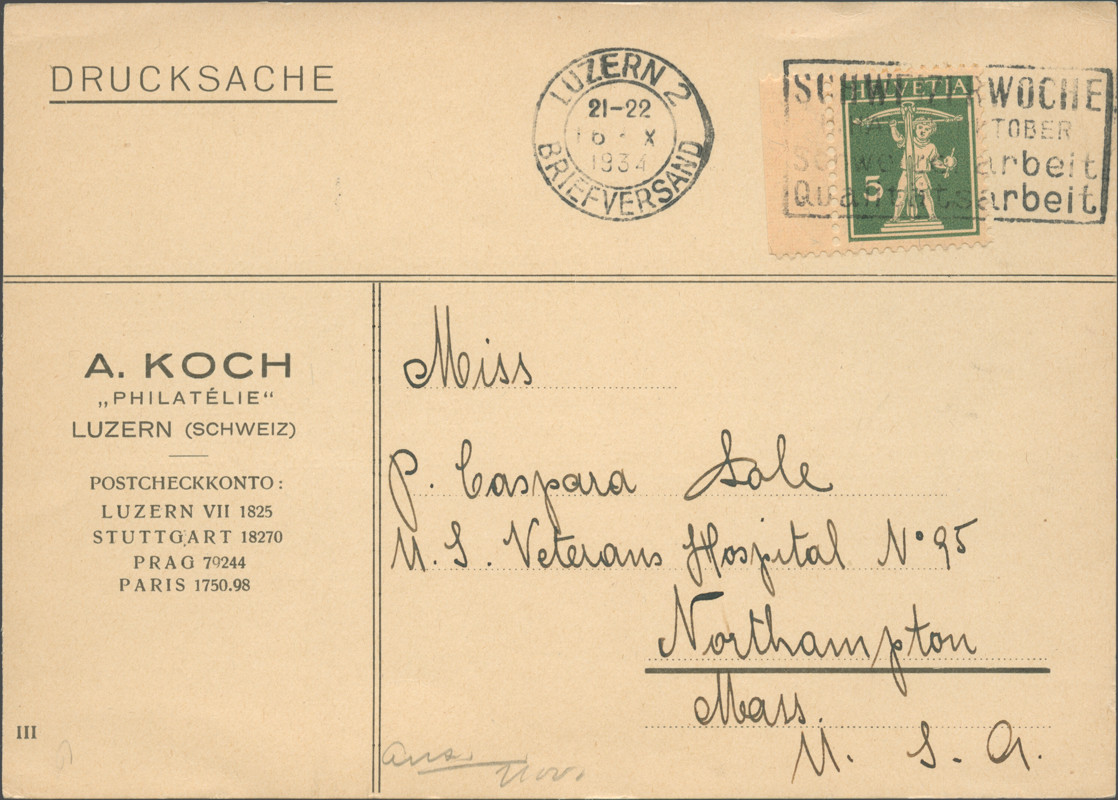 DRUCKSACHE
LUZERN 2
21-22
X
1934
BRIEFVERSAND
HELVETIA
5
WOCHE
TOBER
arbeit
Qualitätsarbeit
A. KOCH
„PHILATÉLIE“
LUZERN (SCHWEIZ)
POSTCHECKKONTO:
LUZERN VII 1825
STUTTGART 18270
PRAG 79244
PARIS 1750.98
III
Miss
P. Caspara Sole
U. S. Veterans Hospital N° 95
Northampton
Mass.
U. S. A.